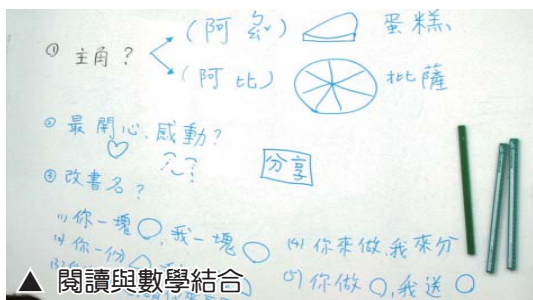 ① 主角？
(阿ㄆㄠˋ) 蛋糕
(阿比) 批薩
② 最開心、感動？
分享
③ 改書名？
(1) 你一塊〇，我一塊〇
(2) 你一份〇
(4) 你來做，我來分
(5) 你做〇，我送〇
▲ 閱讀與數學結合